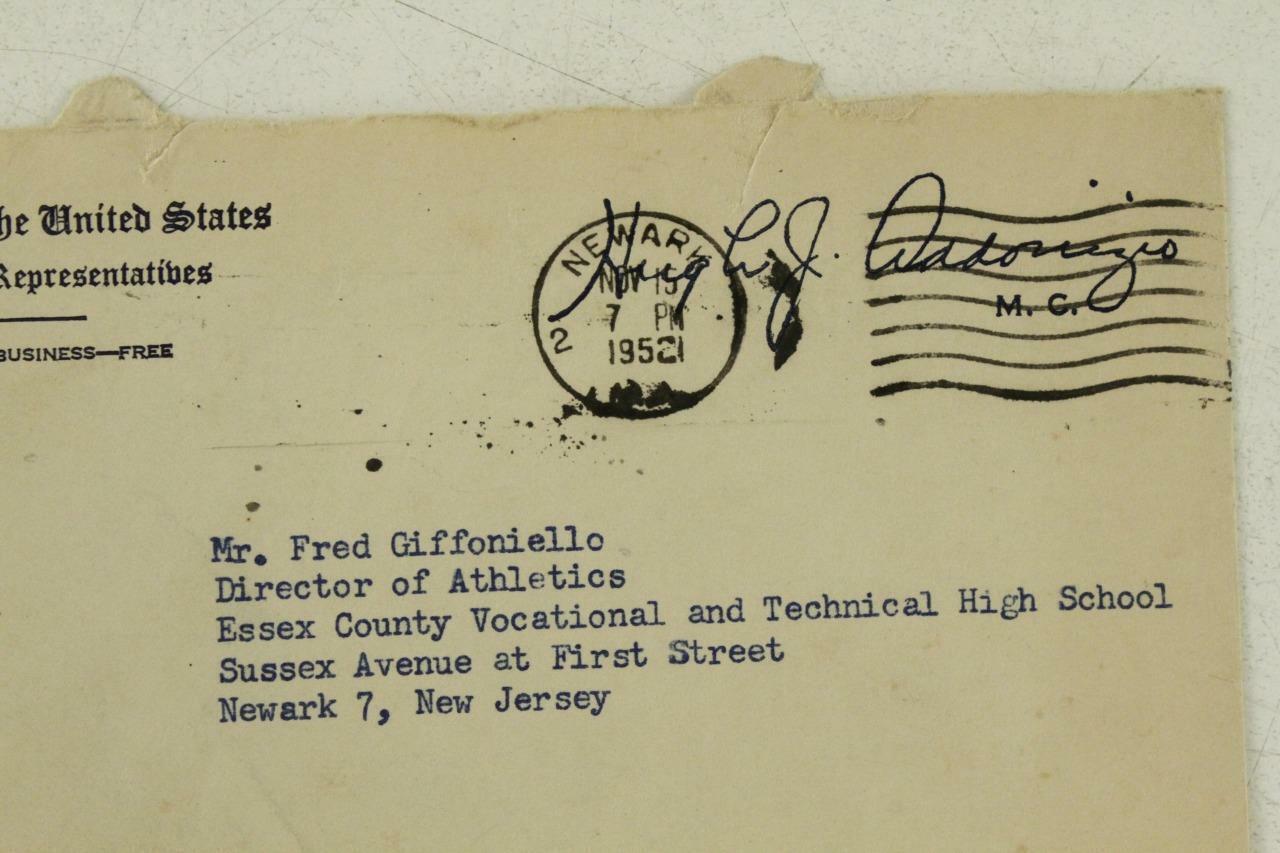 he United States
Representatives
BUSINESS—FREE
NEWARK
NOV 15
7 PM
1952
2
Hugh J. Addonizio
M. C.
Mr. Fred Giffoniello
Director of Athletics
Essex County Vocational and Technical High School
Sussex Avenue at First Street
Newark 7, New Jersey